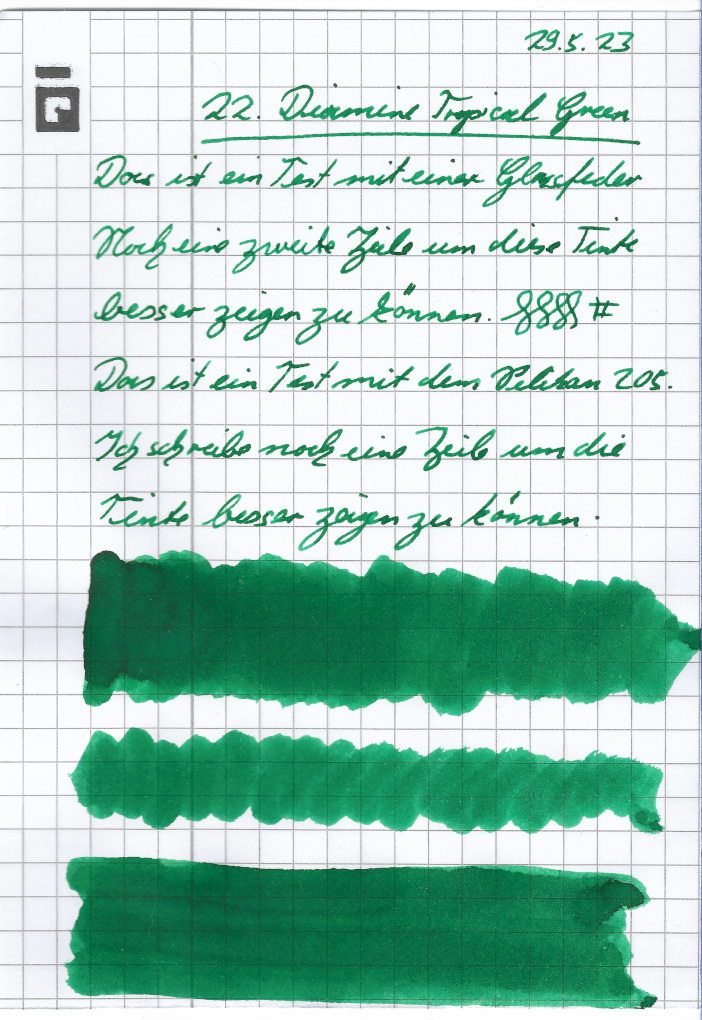 29.5.23
22. Diamine Tropical Green
Das ist ein Test mit einer Glasfeder
Noch eine zweite Zeile um diese Tinte
besser zeigen zu können. §§§§ #
Das ist ein Test mit dem Pelikan 205.
Ich schreibe noch eine Zeile um die
Tinte besser zeigen zu können.